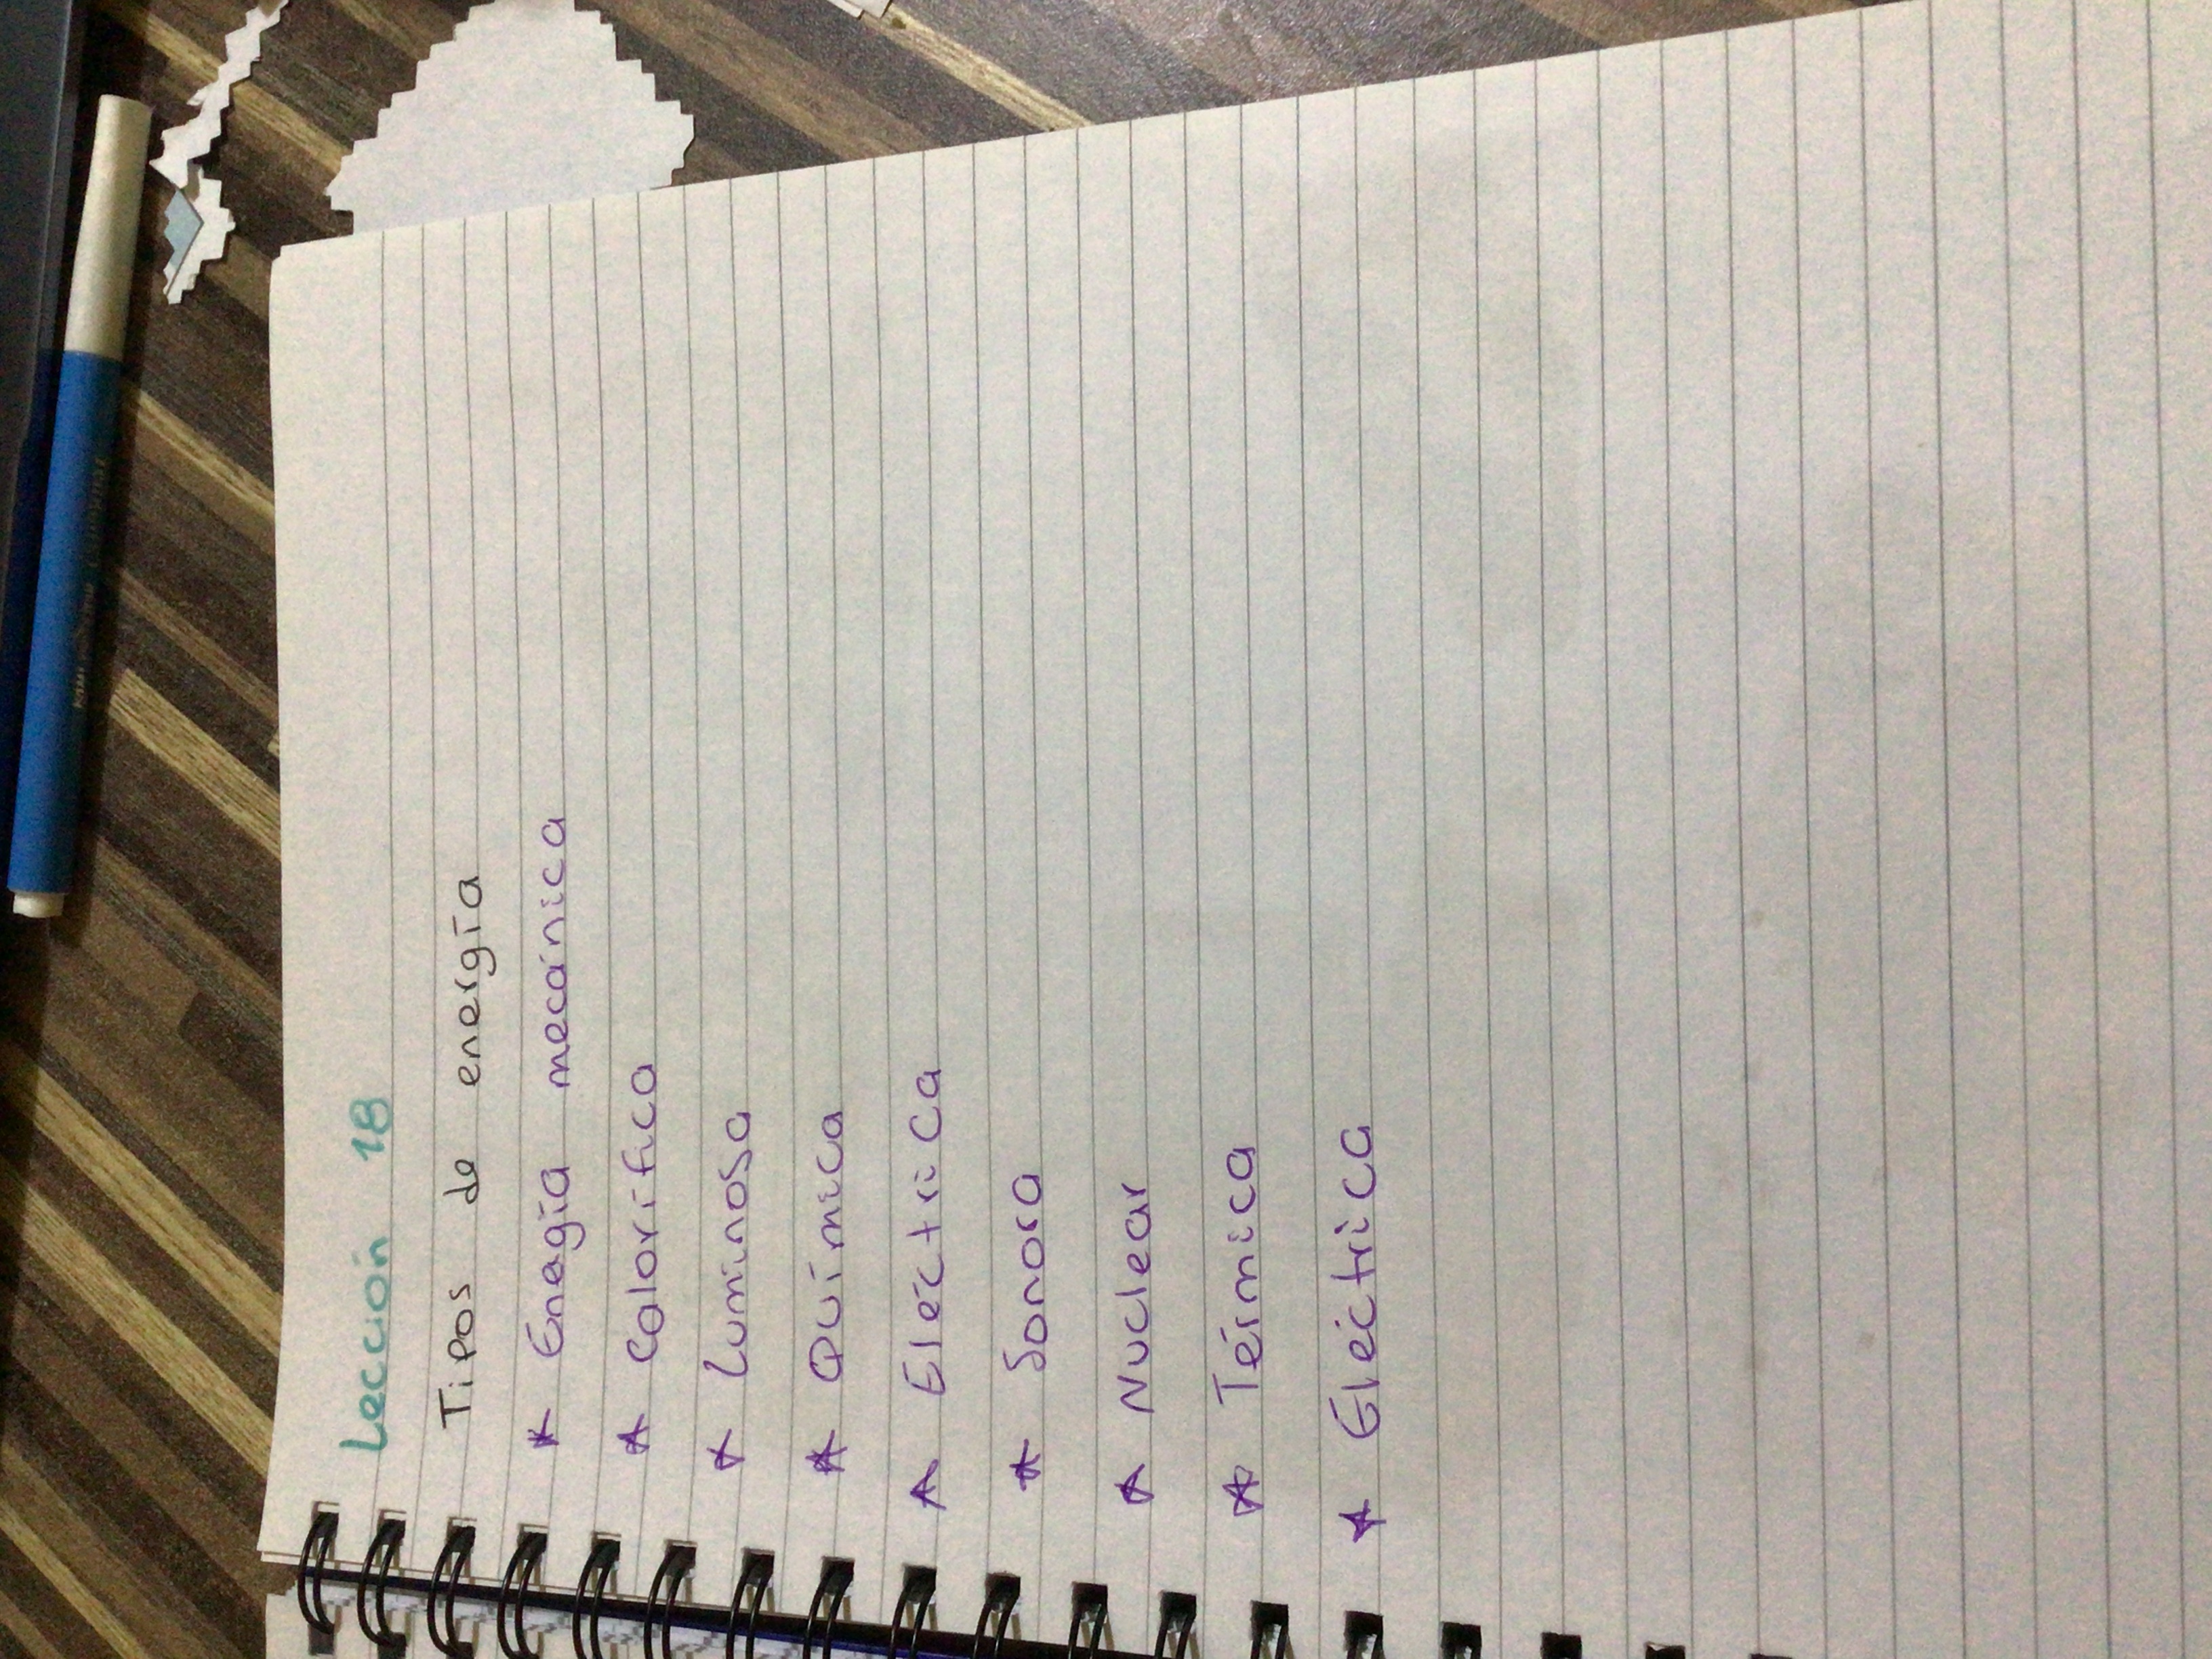 Lección 18
Tipos de energía
* Enegía mecánica
* Calorífica
* Luminosa
* Química
* Eléctrica
* Sonora
* Nuclear
* Térmica
* Eléctrica